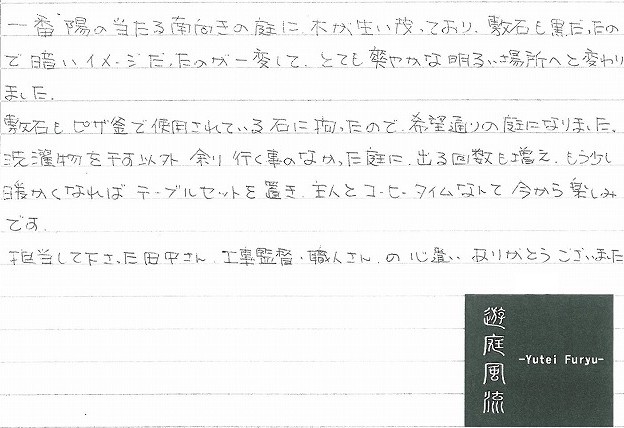 一番陽の当たる南向きの庭に、木が生い茂っており、敷石も黒だったの
で暗いイメージだったのが一変して、とても爽やかな明るい場所へと変わり
ました。
敷石もピザ釜で使用されている石に拘ったので、希望通りの庭になりました。
洗濯物を干す以外 余り行く事のなかった庭に、出る回数も増え、もう少し
暖かくなればテーブルセットを置き、主人とコーヒータイムなんて今から楽しみ
です。
担当して下さった田中さん、工事監督・職人さん、の心遣い ありがとうございました
遊庭風流
-Yutei Furyu-